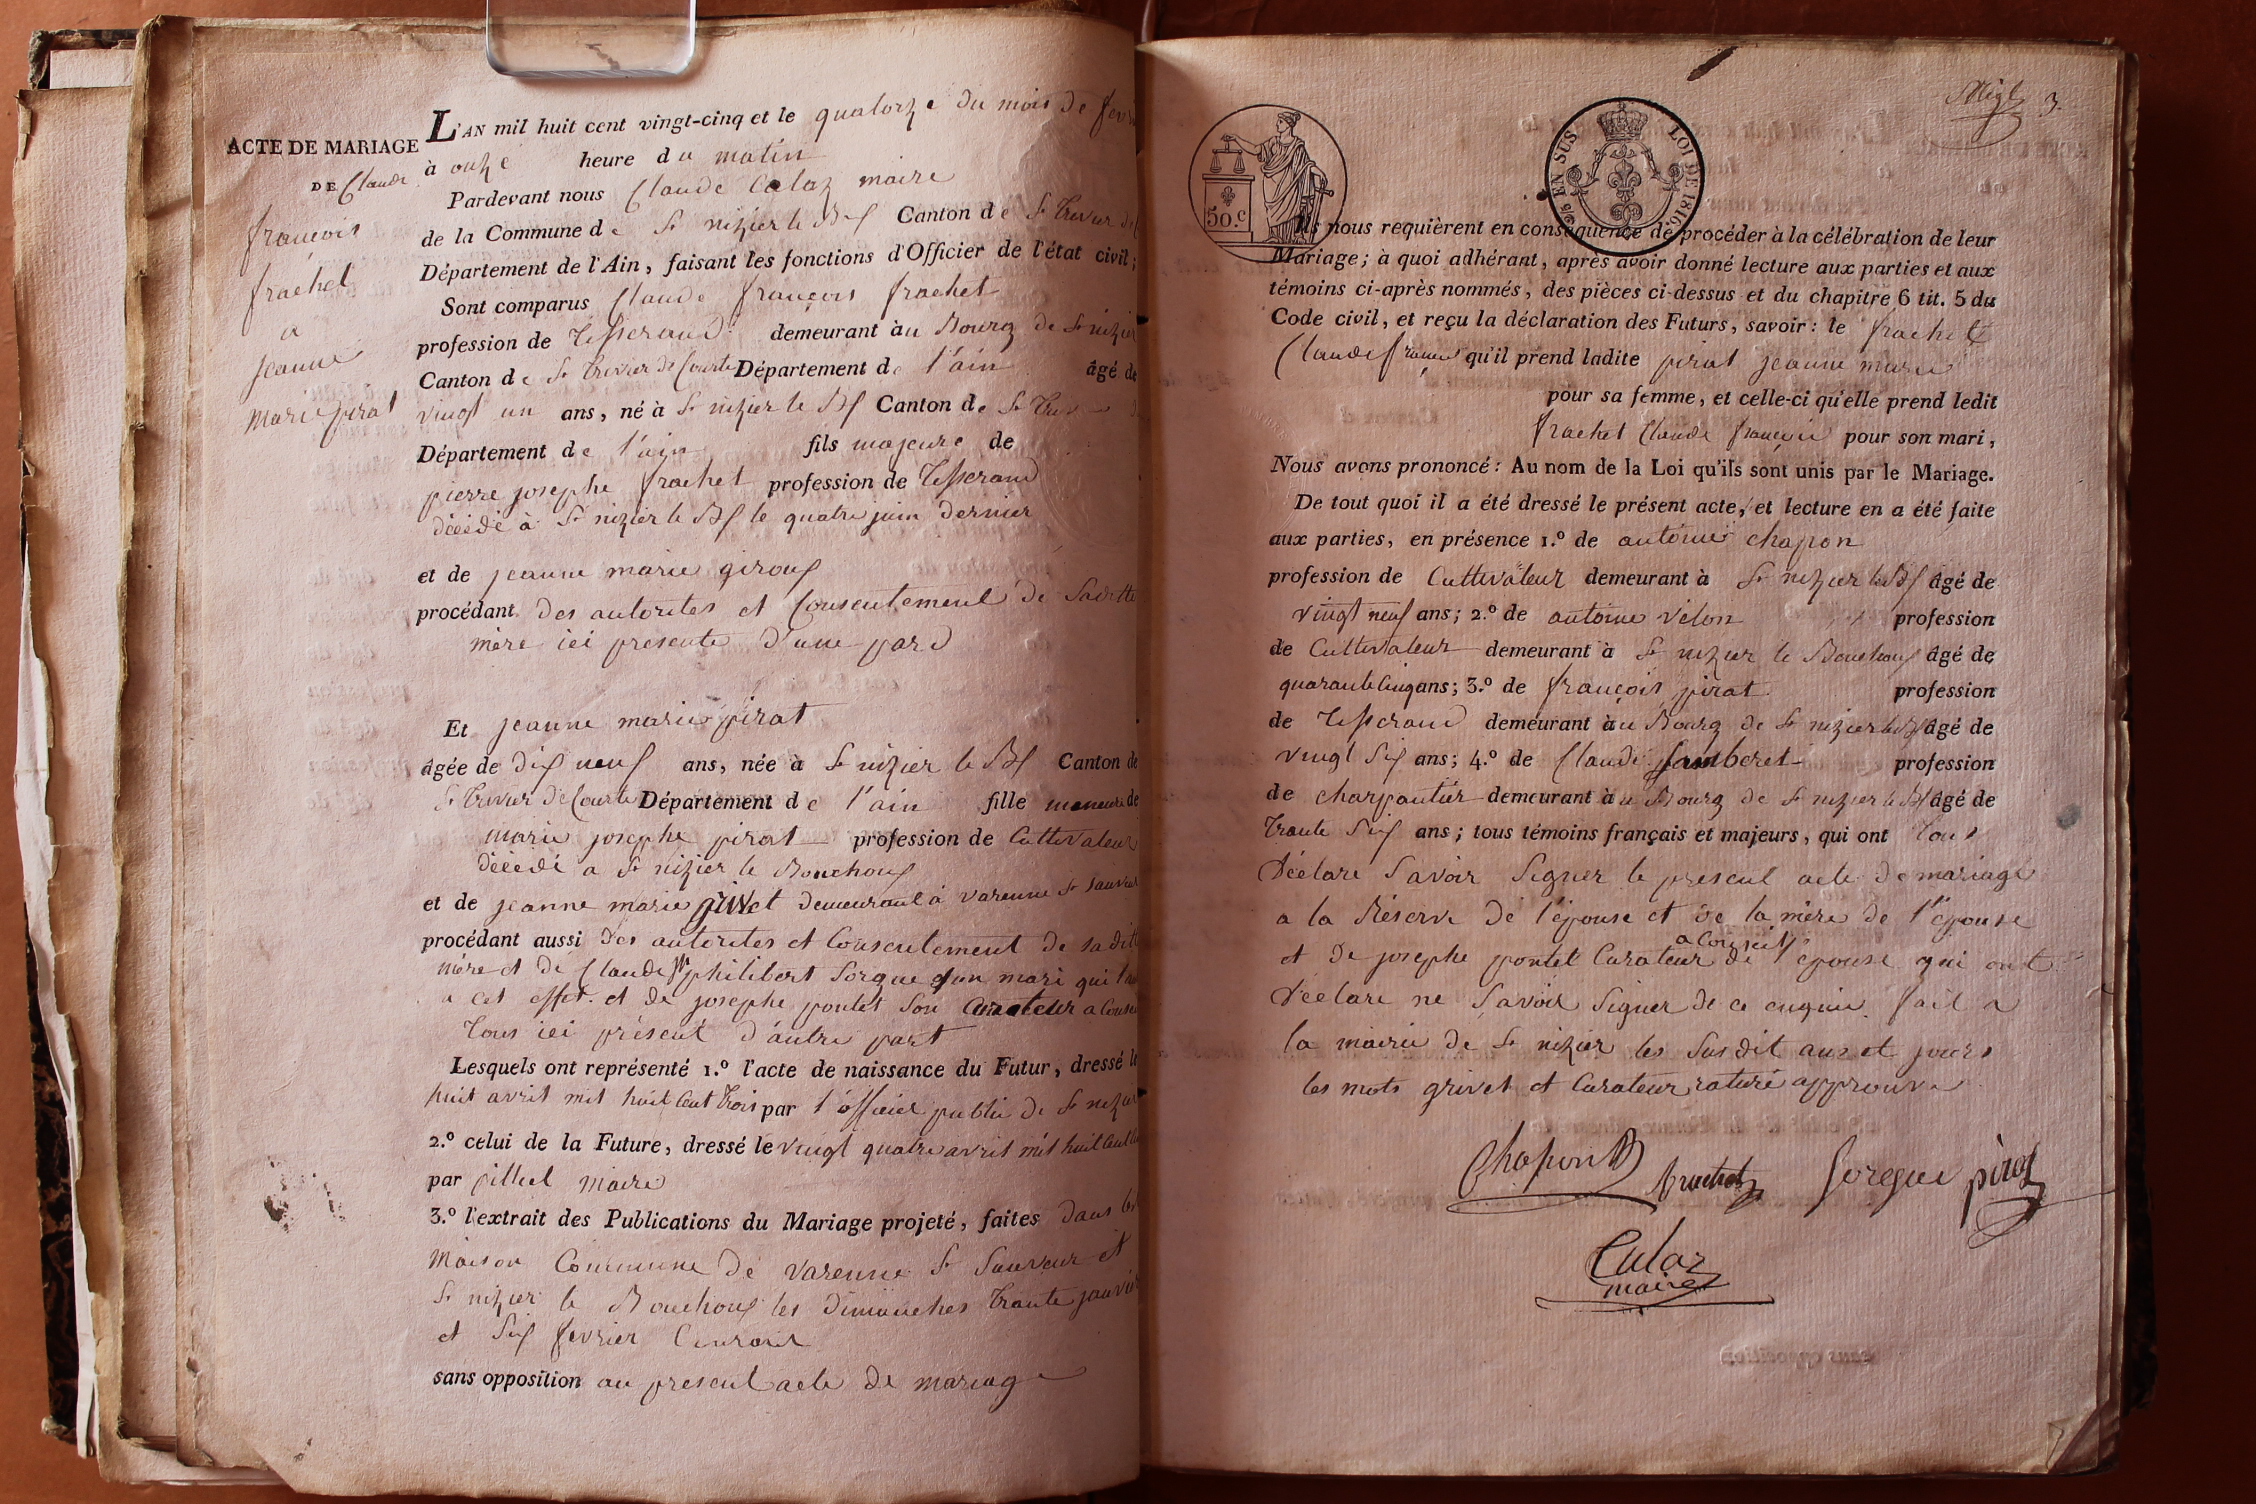 ACTE DE MARIAGE
DE Claude
françois
frachet
a
jeanne
marie pirat
L'AN mil huit cent vingt-cinq et le quatorze du mois de fevri
à onze heure du matin
Pardevant nous Claude Calaz maire
de la Commune de St nizier le Bx Canton de St Trivier de
Département de l'Ain, faisant les fonctions d'Officier de l'état civil;
Sont comparus Claude françois frachet
profession de Tisserand demeurant àu Bourg de St nizier
Canton de St Trivier de Courte Département de l'ain âgé de
vingt un ans, né à St nizier le Bx Canton de St Triv
Département de l'ain fils majeure de
pierre josephe frachet profession de Tisserand
décédé à St nizier le Bx le quatre juin dernier
et de jeanne marie giroux
procédant des autorites et Consentement de Saditte
mère ici presente d'une pard
Et jeanne marie pirat
âgée de dix neuf ans, née à St nizier le Bx Canton de
St Trivier de Courte Département de l'ain fille mineure de
marie josephe pirat profession de Cultivateur
décédé a St nizier le Bouchoux
et de jeanne marie grivet demeurant à varenne St Sauveur
procédant aussi des autorites et Consentement de sa ditte
mère et de Claude philibert Sorgue son mari qui l'
a cet effet. et de josephe pontet Son Curateur a Conse
Tous ici présent d'autre part
Lesquels ont représenté 1.º l'acte de naissance du Futur, dressé le
huit avril mil huit Cent Trois par l'officier public de St nizier
2.º celui de la Future, dressé le vingt quatre avril mil huit Cent
par pilliet maire
3.º l'extrait des Publications du Mariage projeté, faites dans la
Maison Commune de varenne St Sauveur et
St nizier le Bouchoux les dimanches Trante janvier
et Six fevrier Courant
sans opposition au present acte de mariage
3.
50.c
25 EN SUS LOI DE 1816.
Ils nous requièrent en conséquence de procéder à la célébration de leur
Mariage; à quoi adhérant, après avoir donné lecture aux parties et aux
témoins ci-après nommés, des pièces ci-dessus et du chapitre 6 tit. 5 du
Code civil, et reçu la déclaration des Futurs, savoir: le frachet
Claude françois qu'il prend ladite pirat jeanne marie
pour sa femme, et celle-ci qu'elle prend ledit
frachet Claude françois pour son mari,
Nous avons prononcé: Au nom de la Loi qu'ils sont unis par le Mariage.
De tout quoi il a été dressé le présent acte, et lecture en a été faite
aux parties, en présence 1.º de antoine chapon
profession de Cultivateur demeurant à St nizier le Bx âgé de
vingt neuf ans; 2.º de antoine vélon profession
de Cultivateur demeurant à St nizier le Bouchoux âgé de
quarante Cinq ans; 3.º de françois pirat profession
de Tisserand demeurant àu Bourg de St nizier le Bx âgé de
vingt Six ans; 4.º de Claude Jamberet profession
de charpantier demeurant àu Bourg de St nizier le Bx âgé de
Trante Six ans; tous témoins français et majeurs, qui ont Tous
Déclare Savoir Signer le present acte de mariage
a la Réserve de l'épouse et de la mère de l'épouse
a Conseil
et de josephe pontet Curateur de l'épouse qui ont
Déclare ne Savoir Signer de ce enquie. fait a
la mairie de St nizier les Susdit ans et jours
les mots grivet et Curateur raturé approuvé
Chapon
frachet
Soregue
pirat
Calaz
maire